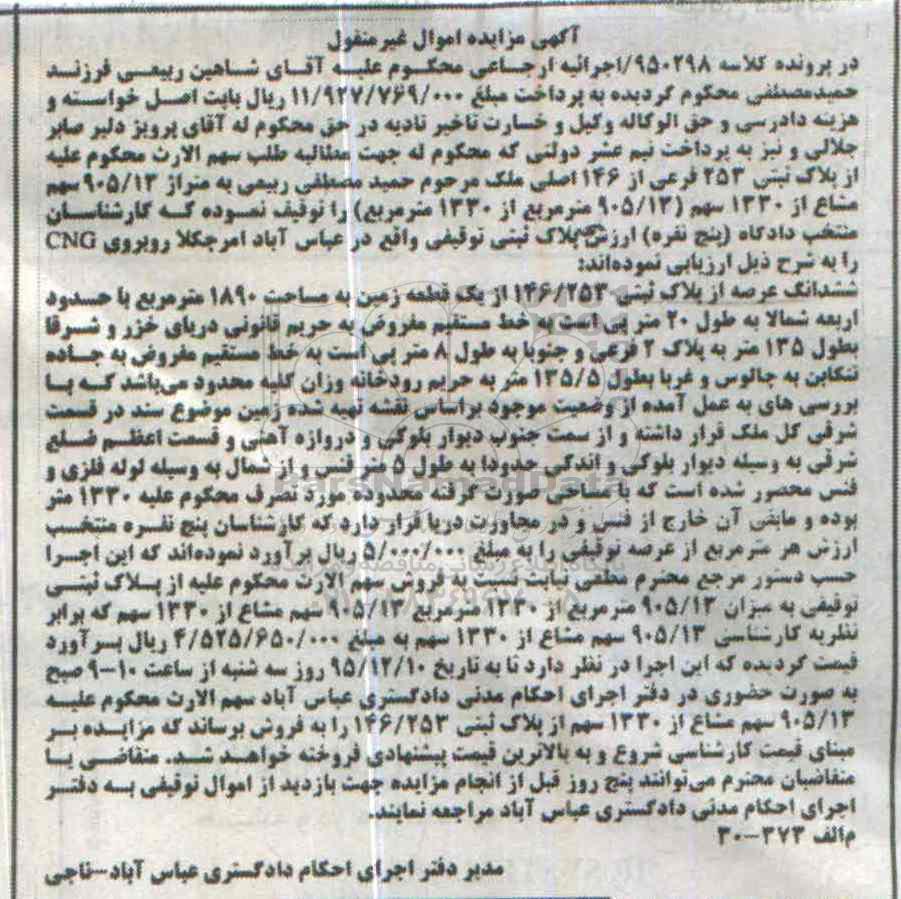 آگهی مزایده اموال غیرمنقول
در پرونده کلاسه ۹۵۰۲۹۸/اجرائیه ارجاعی محکوم علیه آقای شاهین ربیعی فرزند
حمیدمصطفی محکوم گردیده به پرداخت مبلغ ۱۱/۹۲۷/۷۶۹/۰۰۰ ریال بابت اصل خواسته و
هزینه دادرسی و حق الوکاله وکیل و خسارت تاخیر تادیه در حق محکوم له آقای پرویز دلیر صابر
جلالی و نیز به پرداخت نیم عشر دولتی که محکوم له جهت مطالبه طلب سهم الارث محکوم علیه
از پلاک ثبتی ۲۵۳ فرعی از ۱۴۶ اصلی ملک مرحوم حمید مصطفی ربیعی به متراژ ۹۰۵/۱۳ سهم
مشاع از ۱۳۳۰ سهم (۹۰۵/۱۳ مترمربع از ۱۳۳۰ مترمربع) را توقیف نموده که کارشناسان
منتخب دادگاه (پنج نفره) ارزش پلاک ثبتی توقیفی واقع در عباس آباد امرجکلا روبروی CNG
را به شرح ذیل ارزیابی نموده‌اند:
ششدانگ عرصه از پلاک ثبتی ۱۴۶/۲۵۳ از یک قطعه زمین به مساحت ۱۸۹۰ مترمربع با حدود
اربعه شمالا به طول ۲۰ متر پی است به خط مستقیم مفروض به حریم قانونی دریای خزر و شرقا
بطول ۱۳۵ متر به پلاک ۲ فرعی و جنوبا به طول ۸ متر پی است به خط مستقیم مفروض به جاده
تنکابن به چالوس و غربا بطول ۱۳۵/۵ متر به حریم رودخانه وزان کلیه محدود می‌باشد که با
بررسی های به عمل آمده از وضعیت موجود براساس نقشه تهیه شده زمین موضوع سند در قسمت
شرقی کل ملک قرار داشته و از سمت جنوب دیوار بلوکی و دروازه آهنی و قسمت اعظم ضلع
شرقی به وسیله دیوار بلوکی و اندکی حدودا به طول ۵ متر فنس و از شمال به وسیله لوله فلزی و
فنس محصور شده است که با مساحی صورت گرفته محدوده مورد تصرف محکوم علیه ۱۳۳۰ متر
بوده و مابقی آن خارج از فنس و در مجاورت دریا قرار دارد که کارشناسان پنج نفره منتخب
ارزش هر مترمربع از عرصه توقیفی را به مبلغ ۵/۰۰۰/۰۰۰ ریال برآورد نموده‌اند که این اجرا
حسب دستور مرجع محترم معطی نیابت نسبت به فروش سهم الارث محکوم علیه از پلاک ثبتی
توقیفی به میزان ۹۰۵/۱۳ مترمربع از ۱۳۳۰ مترمربع ۹۰۵/۱۳ سهم مشاع از ۱۳۳۰ سهم که برابر
نظریه کارشناسی ۹۰۵/۱۳ سهم مشاع از ۱۳۳۰ سهم به مبلغ ۴/۵۲۵/۶۵۰/۰۰۰ ریال برآورد
قیمت گردیده که این اجرا در نظر دارد تا به تاریخ ۹۵/۱۲/۱۰ روز سه شنبه از ساعت ۱۰-۹ صبح
به صورت حضوری در دفتر اجرای احکام مدنی دادگستری عباس آباد سهم الارث محکوم علیه
۹۰۵/۱۳ سهم مشاع از ۱۳۳۰ سهم از پلاک ثبتی ۱۴۶/۲۵۳ را به فروش برساند که مزایده بر
مبنای قیمت کارشناسی شروع و به بالاترین قیمت پیشنهادی فروخته خواهد شد. متقاضی یا
متقاضیان محترم می‌توانند پنج روز قبل از انجام مزایده جهت بازدید از اموال توقیفی به دفتر
اجرای احکام مدنی دادگستری عباس آباد مراجعه نمایند.
م‌الف ۳۷۳-۳۰
مدیر دفتر اجرای احکام دادگستری عباس آباد-تاجی